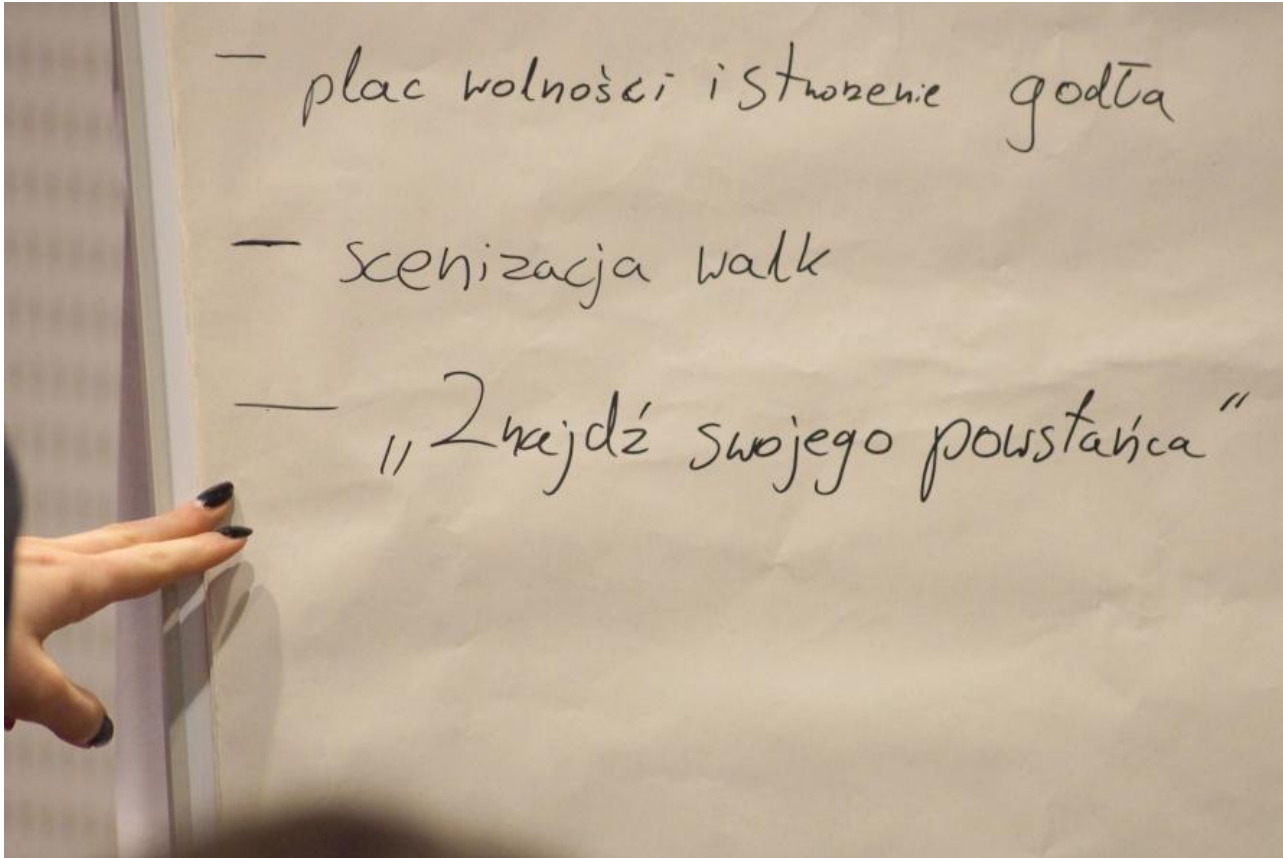 — plac wolności i stworzenie godła
— scenizacja walk
— „Znajdź swojego powstańca"